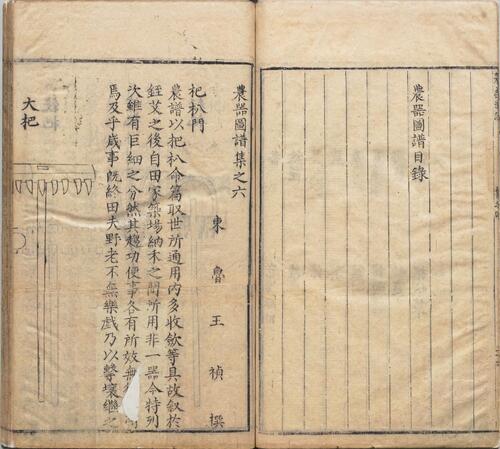 農器圖譜目錄
農器圖譜集之六
東魯王禎撰
杷朳門
農譜以杷朳命篇取世所通用内多收斂等具故叙於
銍艾之後自田家築場納禾之間所用非一器今特列
次雖有巨細之分然其趨功便事各有所效無
焉及乎歲事既終田夫野老不無樂戲乃以擊壤繼之
大杷